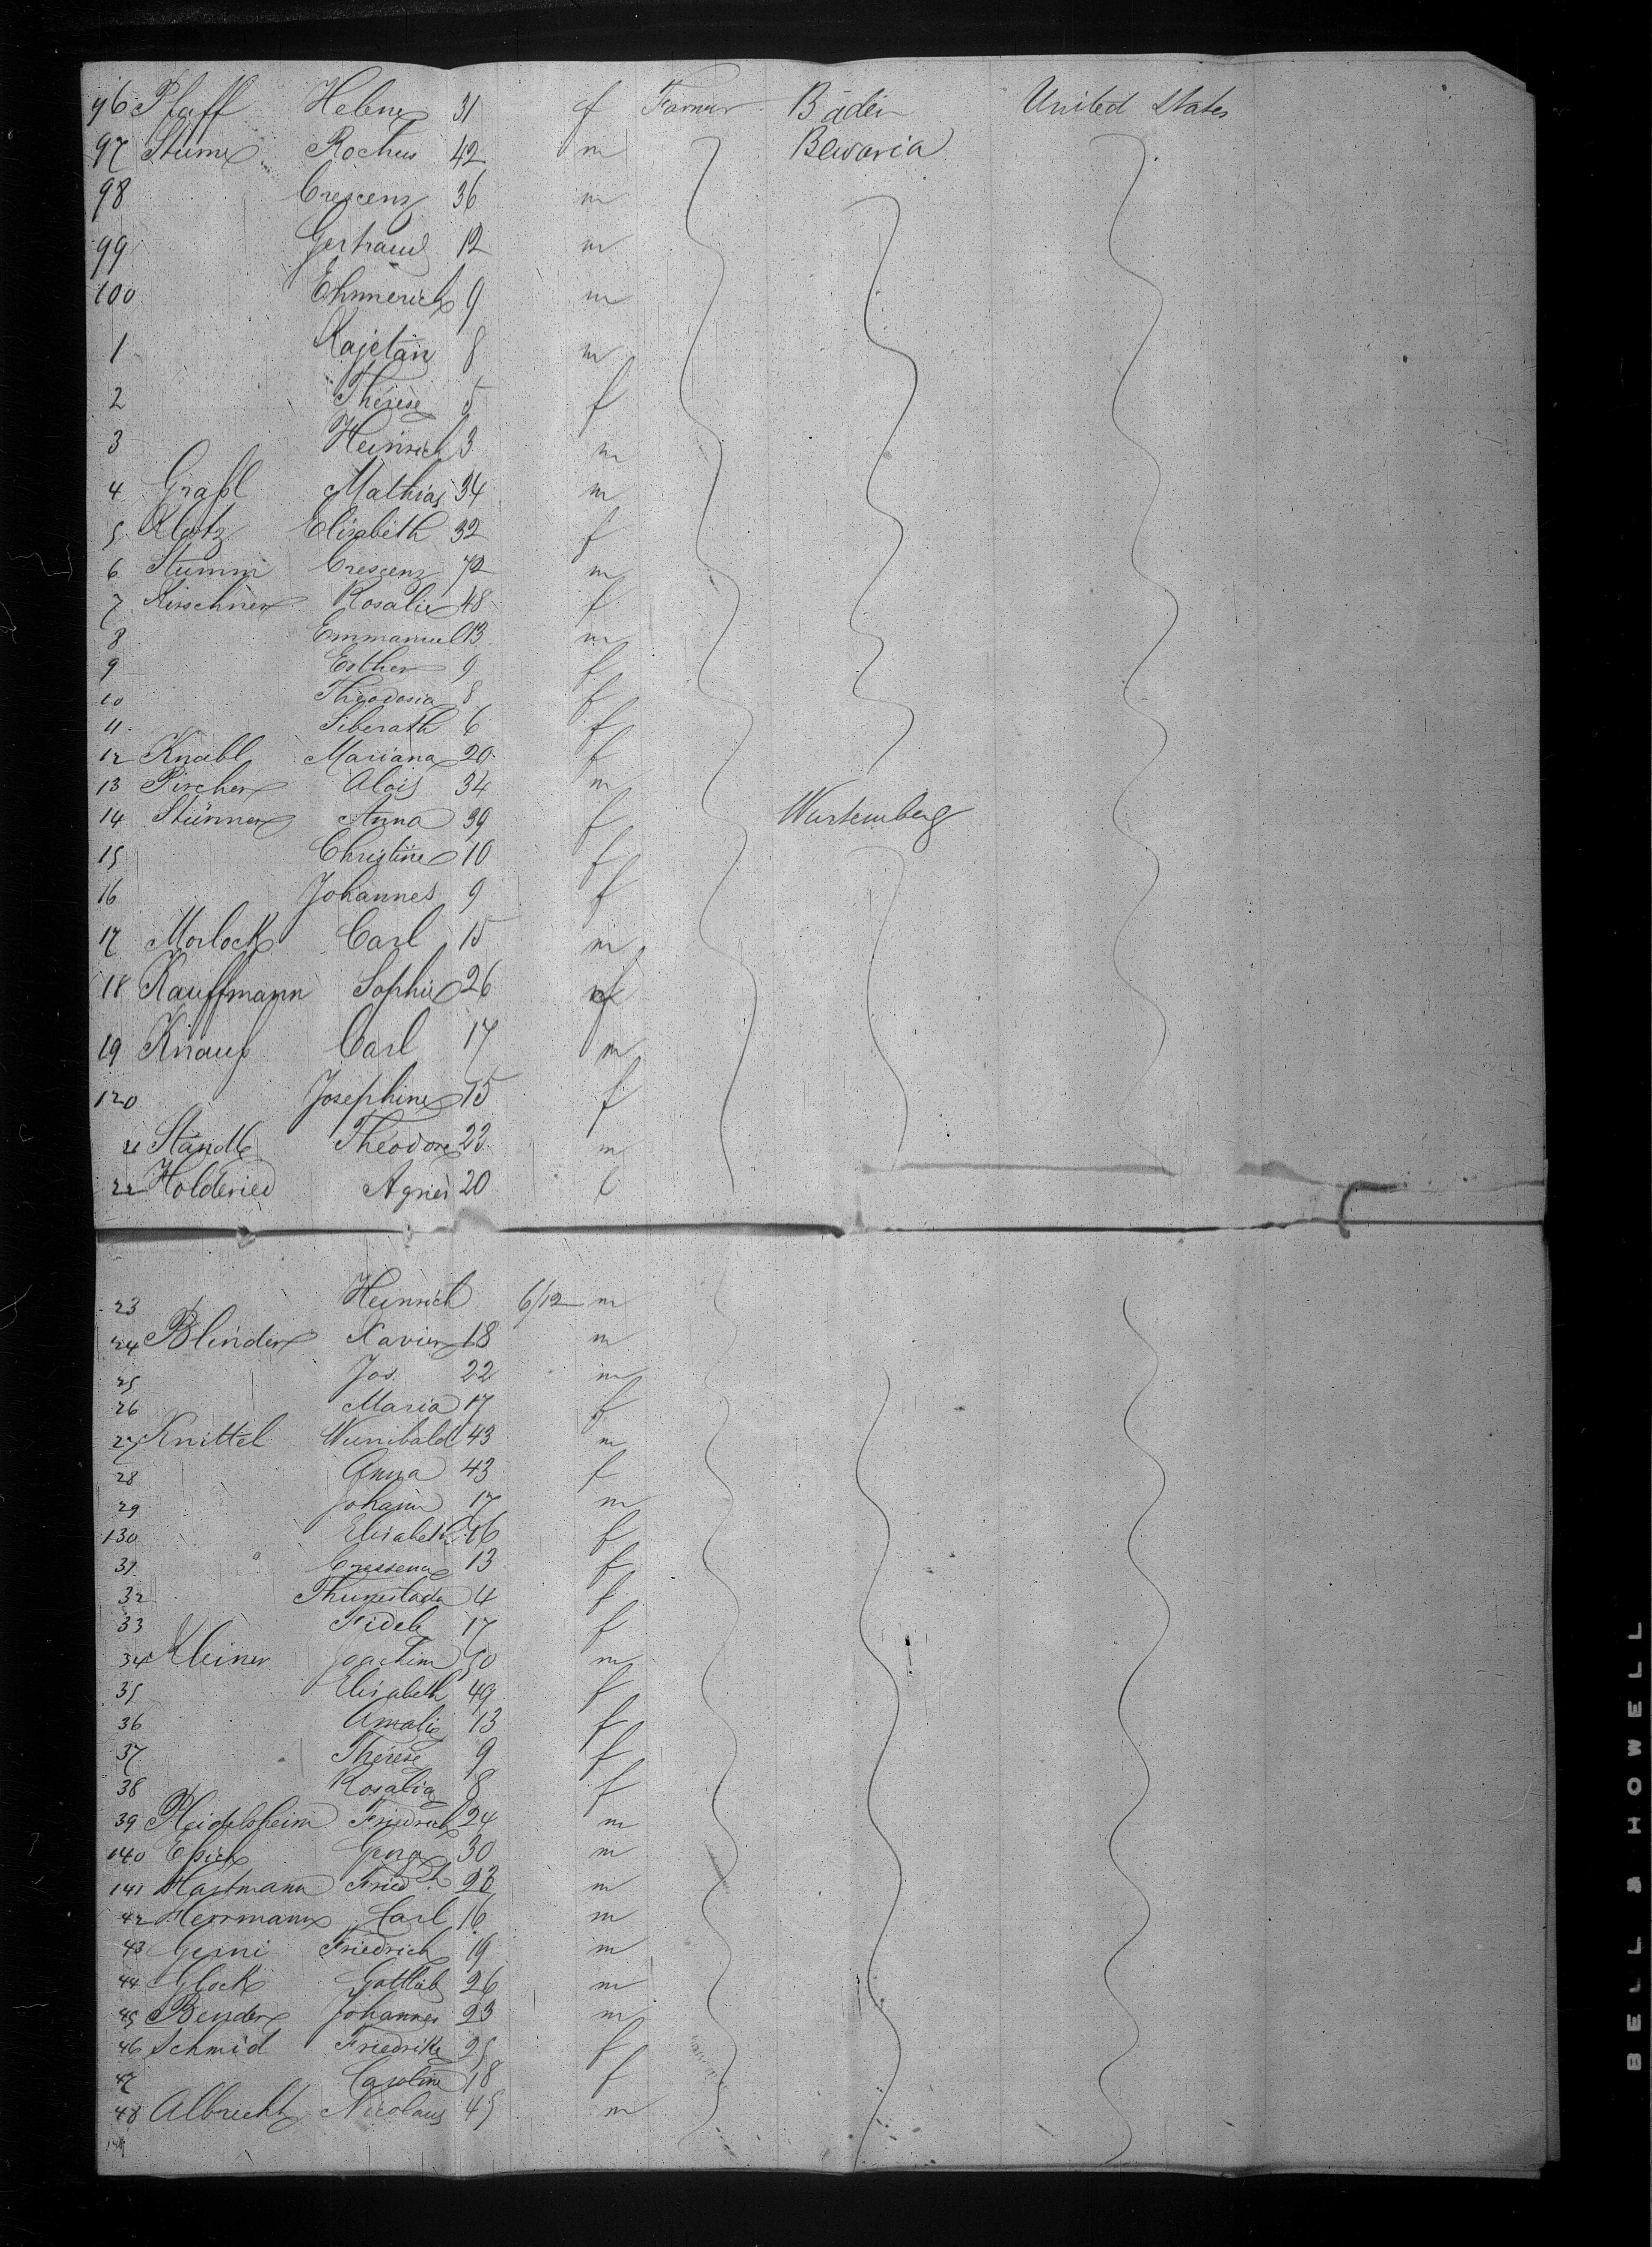 96 Pfaff Helene 31 f Farmer Baden United States
97 Stumm Rochus 42 m Bavaria
98 Crescenz 36 m
99 Gertraud 12 m
100 Ehmerich 9 m
1 Kajetan 8 m
2 Therese 5 f
3 Heinrich 3 m
4 Graßl Mathias 34 m
5 Klotz Elisabeth 32 f
6 Stumm Crescenz 72 m
7 Kirschner Rosalie 48 f
8 Emmanuel 13 m
9 Esther 9 f
10 Theodosia 8 f
11 Siberath 6 f
12 Knabl Mariana 20 f
13 Pircher Alois 34 m
14 Stürmer Anna 39 f Wurtemberg
15 Christine 10 f
16 Johannes 9 f
17 Morlock Carl 15 m
18 Kauffmann Sophie 26 f
19 Knauf Carl 17 m
120 Josephine 15 f
21 Standl Theodore 22 m
22 Holderied Agnes 20 f
23 Heinrich 6/12 m
24 Blinder Xavier 18 m
25 Jos. 22 m
26 Maria 17 f
27 Knittel Wunibald 43 m
28 Anna 43 f
29 Johann 17 m
130 Elisabeth 16 f
31 Cressena 13 f
32 4 f
33 Fidele 17 f
34 Kleiner Joachim 50 m
35 Elisabeth 49 f
36 Amalie 13 f
37 Therese 9 f
38 Rosalia 8 f
39 Heidelsheim Friedrich 24 m
140 Epich Georg 30 m
141 Hartmann Friedch. 23 m
42 Herrmann Carl 16 m
43 Gerni Friedrich 19 m
44 Glock Gottlieb 26 m
45 Bender Johannes 23 m
46 Schmid Friedrike 25 f
47 Caroline 18 f
48 Albrecht Nicolaus 45 m
149
BELL & HOWELL